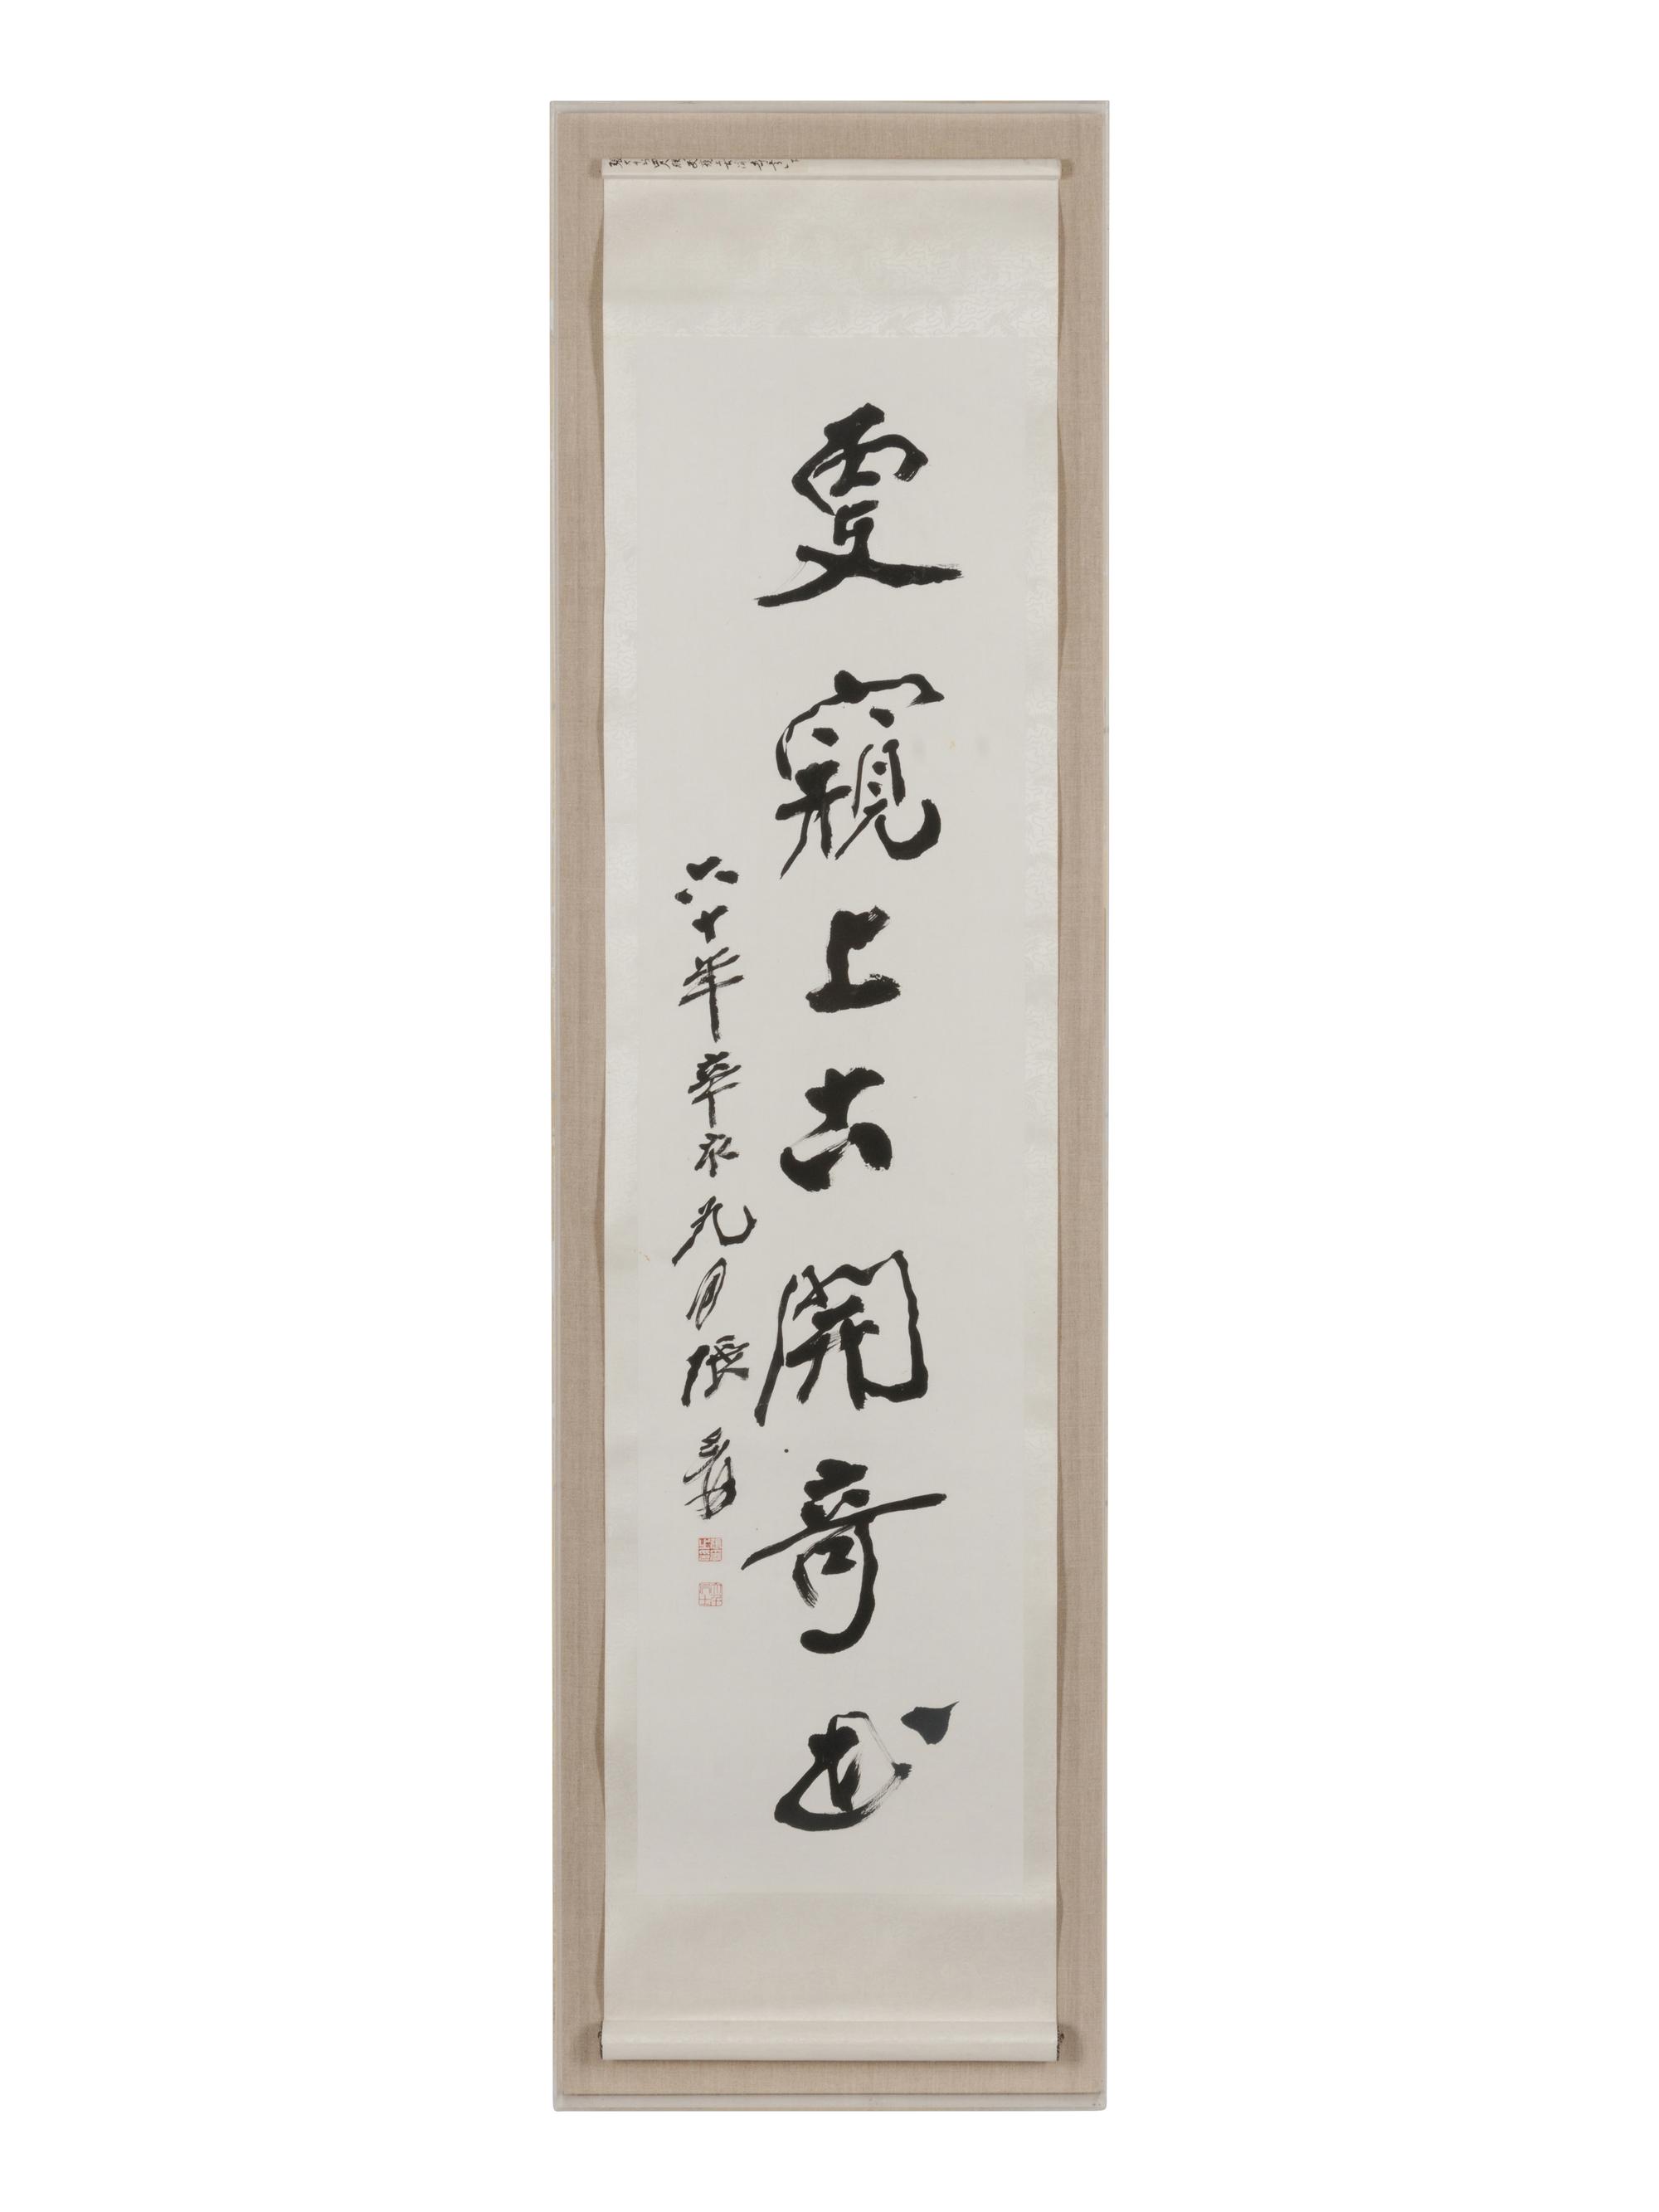 更窺上古開奇書
六十年辛亥九月張爰